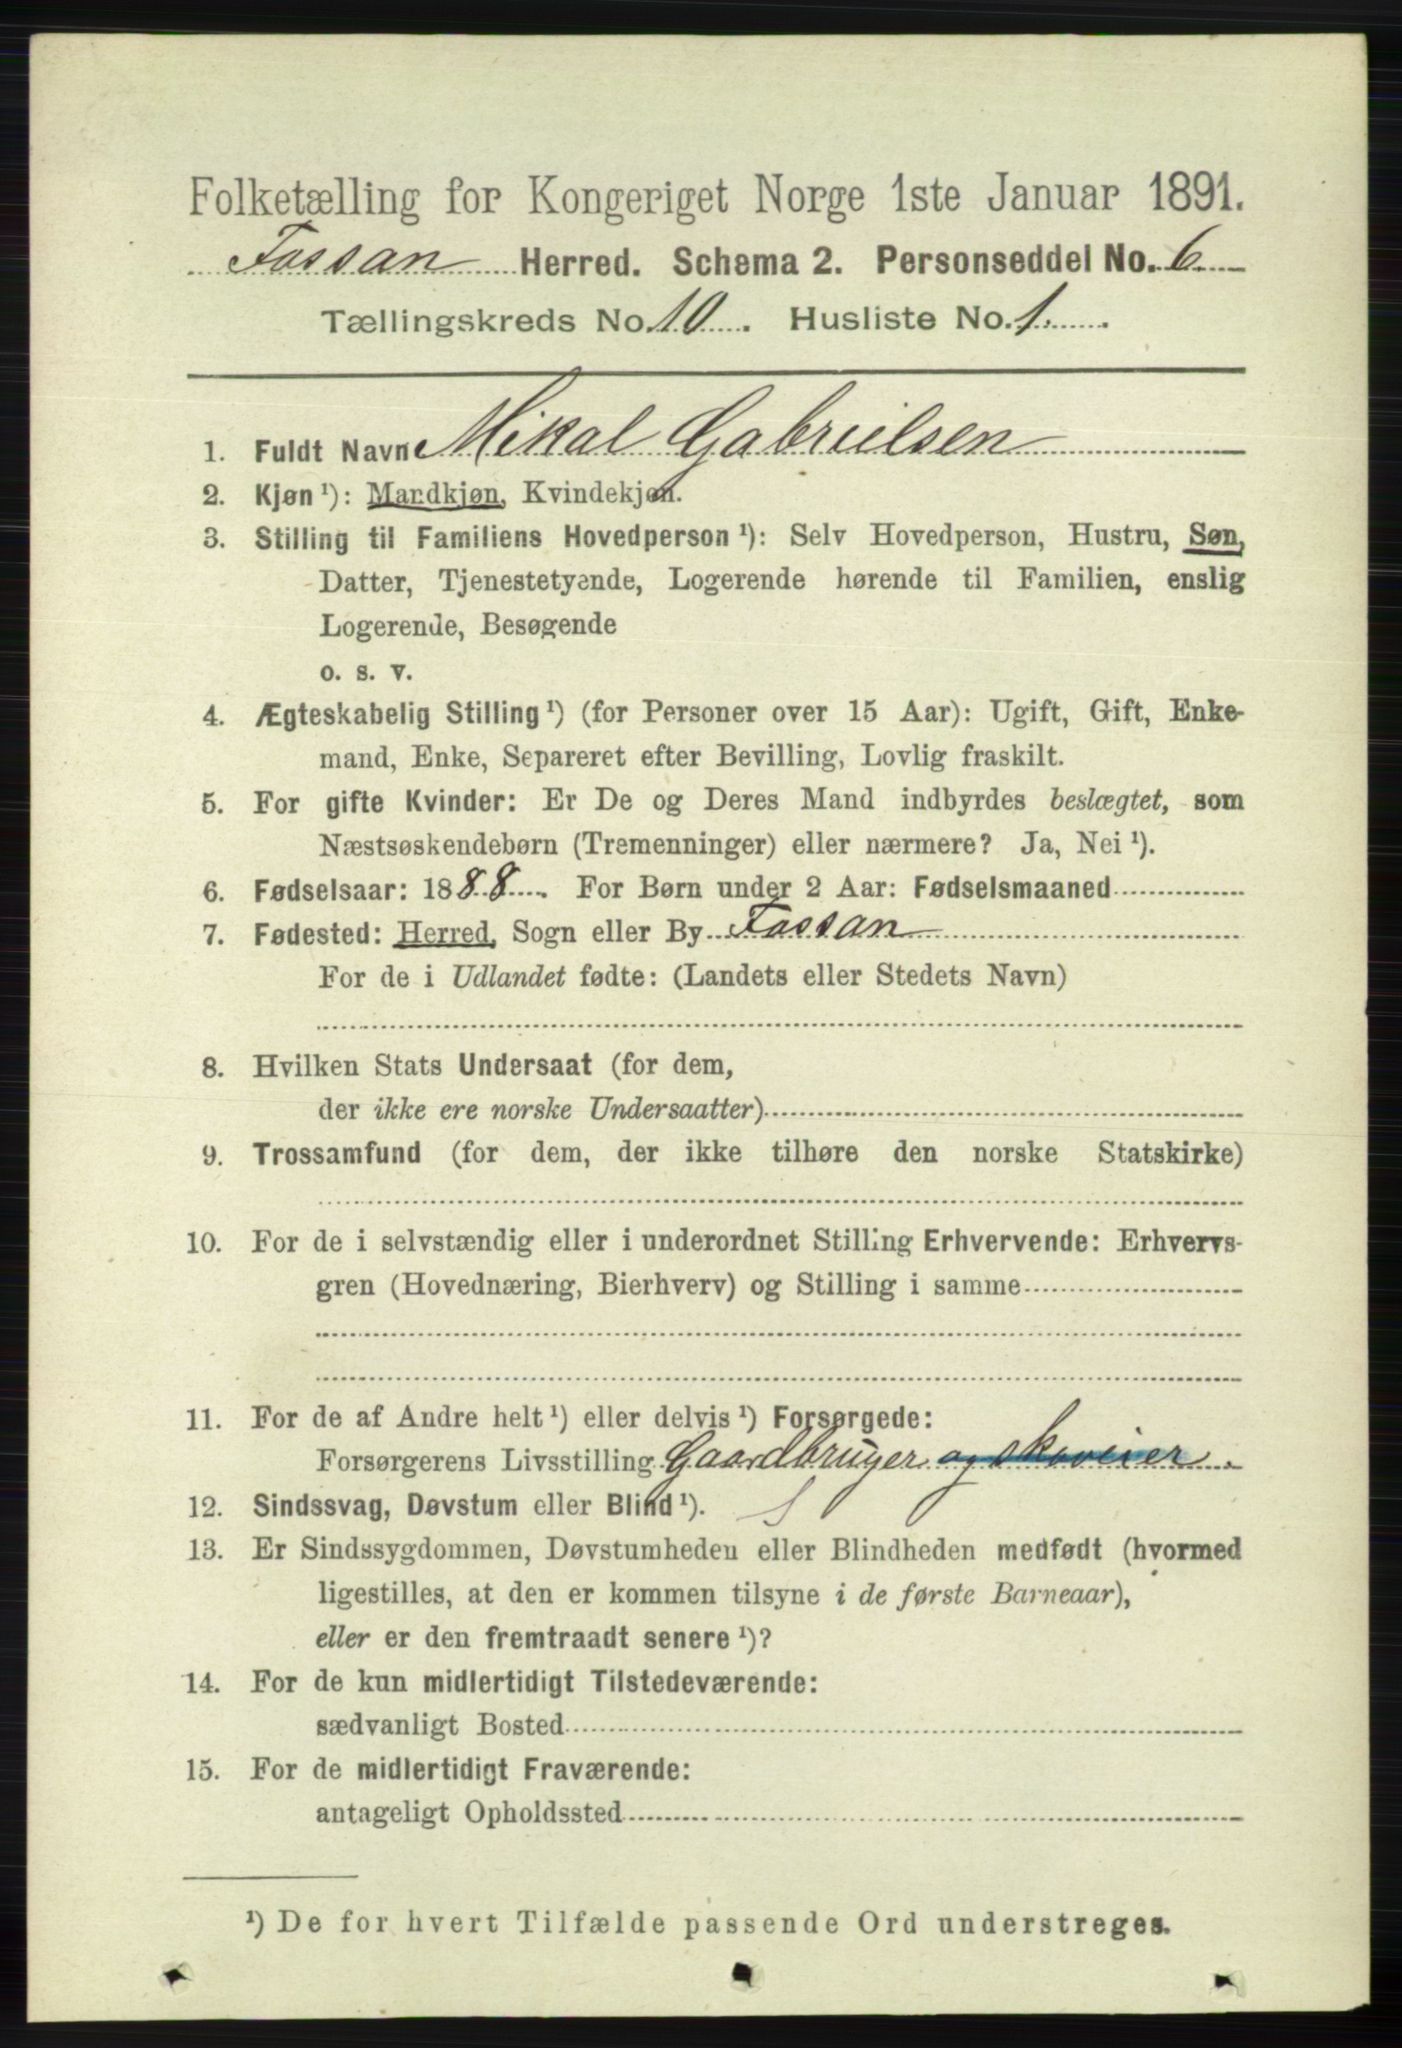 Folketælling for Kongeriget Norge 1ste Januar 1891.
Fossan Herred. Schema 2. Personseddel No. 6
Tællingskreds No. 10. Husliste No. 1.
1. Fuldt Navn Mikal Gabrielsen
2. Kjøn ¹): Mandkjøn, Kvindekjøn.
3. Stilling til Familiens Hovedperson ¹): Selv Hovedperson, Hustru, Søn,
Datter, Tjenestetyende, Logerende hørende til Familien, enslig
Logerende, Besøgende
o. s. v.
4. Ægteskabelig Stilling ¹) (for Personer over 15 Aar): Ugift, Gift, Enke-
mand, Enke, Separeret efter Bevilling, Lovlig fraskilt.
5. For gifte Kvinder: Er De og Deres Mand indbyrdes beslægtet, som
Næstsøskendebørn (Tremenninger) eller nærmere? Ja, Nei ¹).
6. Fødselsaar: 1888. For Børn under 2 Aar: Fødselsmaaned
7. Fødested: Herred, Sogn eller By Fossan
For de i Udlandet fødte: (Landets eller Stedets Navn)
8. Hvilken Stats Undersaat (for dem,
der ikke ere norske Undersaatter)
9. Trossamfund (for dem, der ikke tilhøre den norske Statskirke)
10. For de i selvstændig eller i underordnet Stilling Erhvervende: Erhvervs-
gren (Hovednæring, Bierhverv) og Stilling i samme
11. For de af Andre helt ¹) eller delvis ¹) Forsørgede:
Forsørgerens Livsstilling Gaardbruger og skoveier.
12. Sindssvag, Døvstum eller Blind ¹).
13. Er Sindssygdommen, Døvstumheden eller Blindheden medfødt (hvormed
ligestilles, at den er kommen tilsyne i de første Barneaar),
eller er den fremtraadt senere ¹)?
14. For de kun midlertidigt Tilstedeværende:
sædvanligt Bosted
15. For de midlertidigt Fraværende:
antageligt Opholdssted
¹) De for hvert Tilfælde passende Ord understreges.